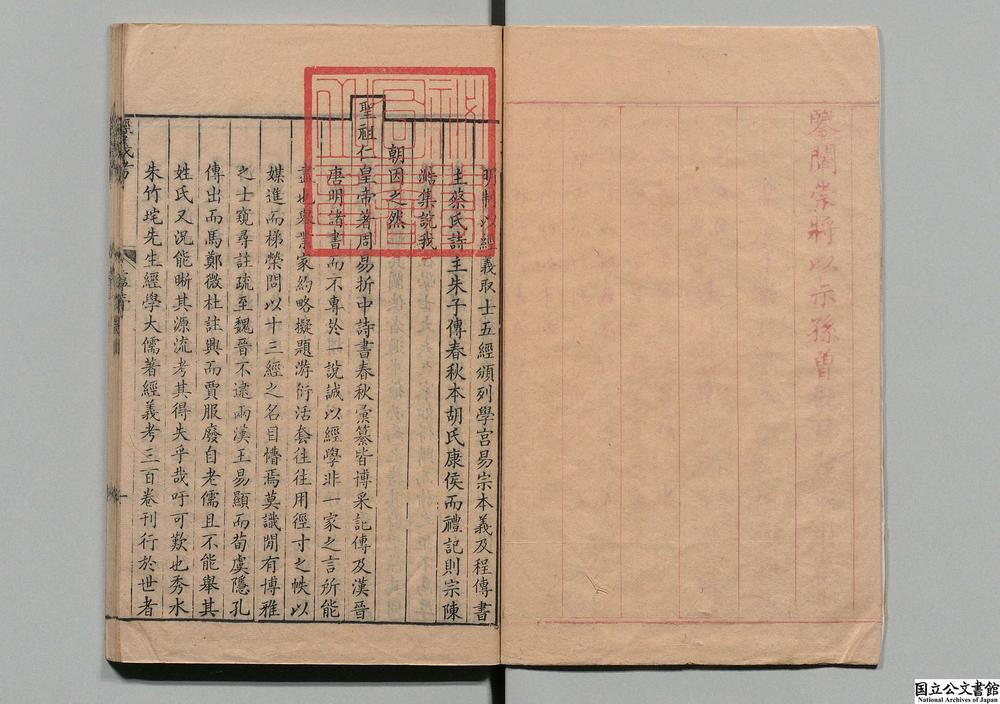 鑒閣崇將以示孫曾
明制以經義取士五經頒列學宫易宗本義及程傳書
主蔡氏詩主朱子傳春秋本胡氏康侯而禮記則宗陳
澔集說我
朝因之然
聖祖仁皇帝著周易折中詩書春秋彙纂皆博采記傳及漢晉
唐明諸書而不專於一說誠以經學非一家之言所能
盡也舉業家約略擬題游衍活套往往用徑寸之帙以
媒進而梯榮問以十三經之名目懵焉莫識閒有博雅
之士窺尋註疏至魏晉不逮兩漢王易顯而荀虞隱孔
傳出而馬鄭微杜註興而賈服廢自老儒且不能舉其
姓氏又況能晰其源流考其得失乎哉吁可歎也秀水
朱竹垞先生經學大儒著經義考三百卷刊行於世者
經義考
一
国立公文書館
National Archives of Japan